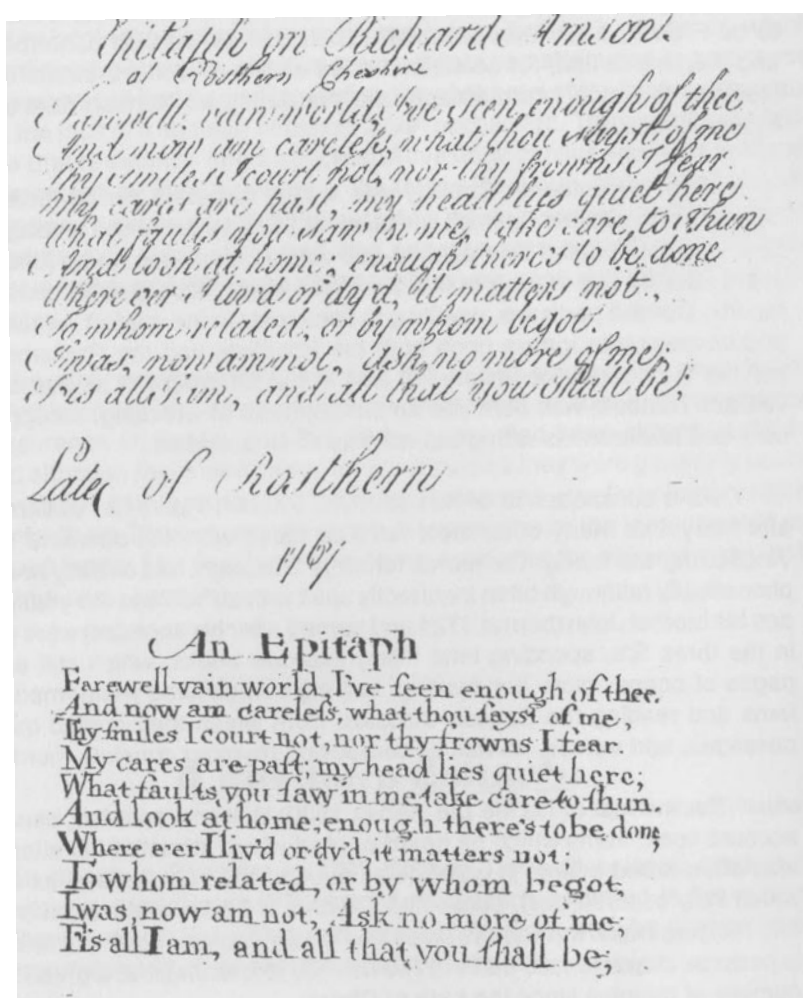 Epitaph on Richard Amson.
at Rosthern Cheshire
Farewell vain world, I've seen enough of thee
And now am careleſs, what thou sayst of me
Thy smiles I court not, nor thy frowns I fear
My cares are past, my head lies quiet here
What faults you saw in me, take care to shun
And look at home; enough there's to be done
Where e'er I liv'd or dy'd, it matters not.
To whom related, or by whom begot.
I was, now am not, Ask no more of me,
'Tis all I am, and all that you shall be;
of Rosthern
1767
An Epitaph
Farewell vain world, I've ſeen enough of thee,
And now am careleſs, what thou ſayst of me,
Thy ſmiles I court not, nor thy frowns I fear.
My cares are paſt, my head lies quiet here;
What faults you ſaw in me take care to ſhun,
And look at home; enough there's to be done,
Where e'er I liv'd or dy'd, it matters not;
To whom related, or by whom begot,
I was, now am not, Ask no more of me;
'Tis all I am, and all that you ſhall be;